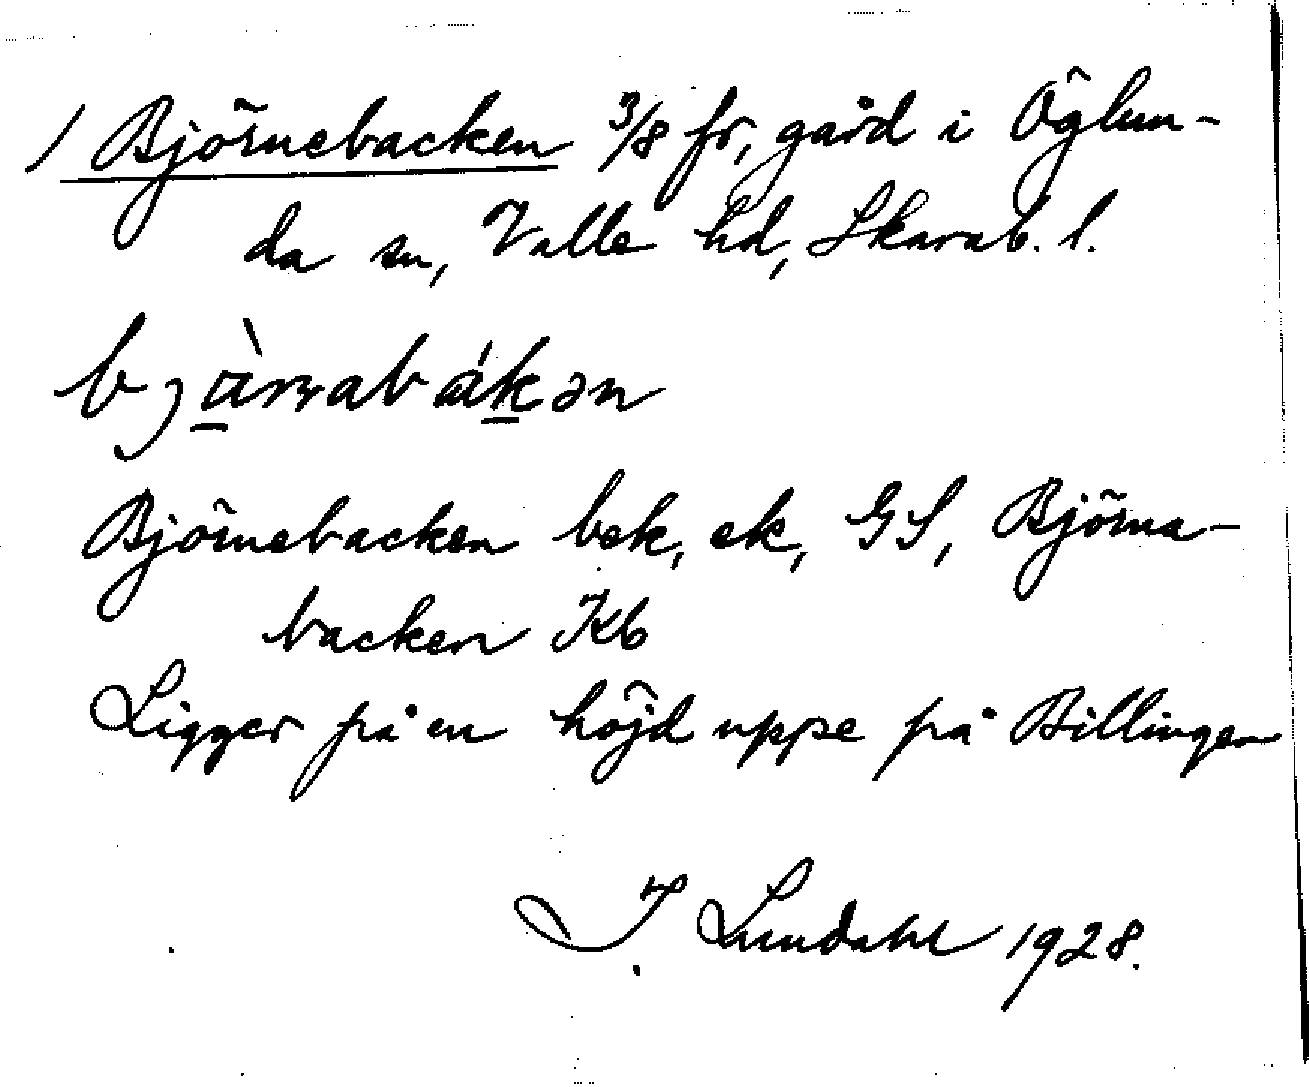 1 Björnebacken 3/8 fr, gård i Öglun-
da sn, Valle hd, Skarab. l.
Björnebacken bek, ek, GS, Björna-
backen Kb
Ligger på en höjd uppe på Billingen
I. Lundahl 1928.